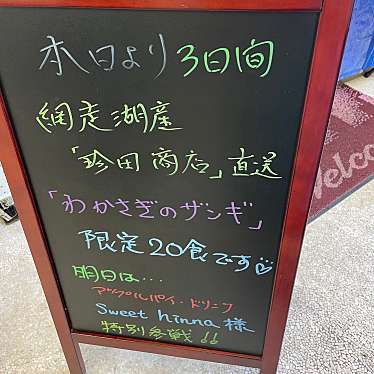 本日より3日間
網走湖産
「珍田商店」直送
「わかさぎのザンギ」
限定20食です♡
明日は…
アップルパイ・ドリンク
Sweet hinna様
特別参戦!!
Welco